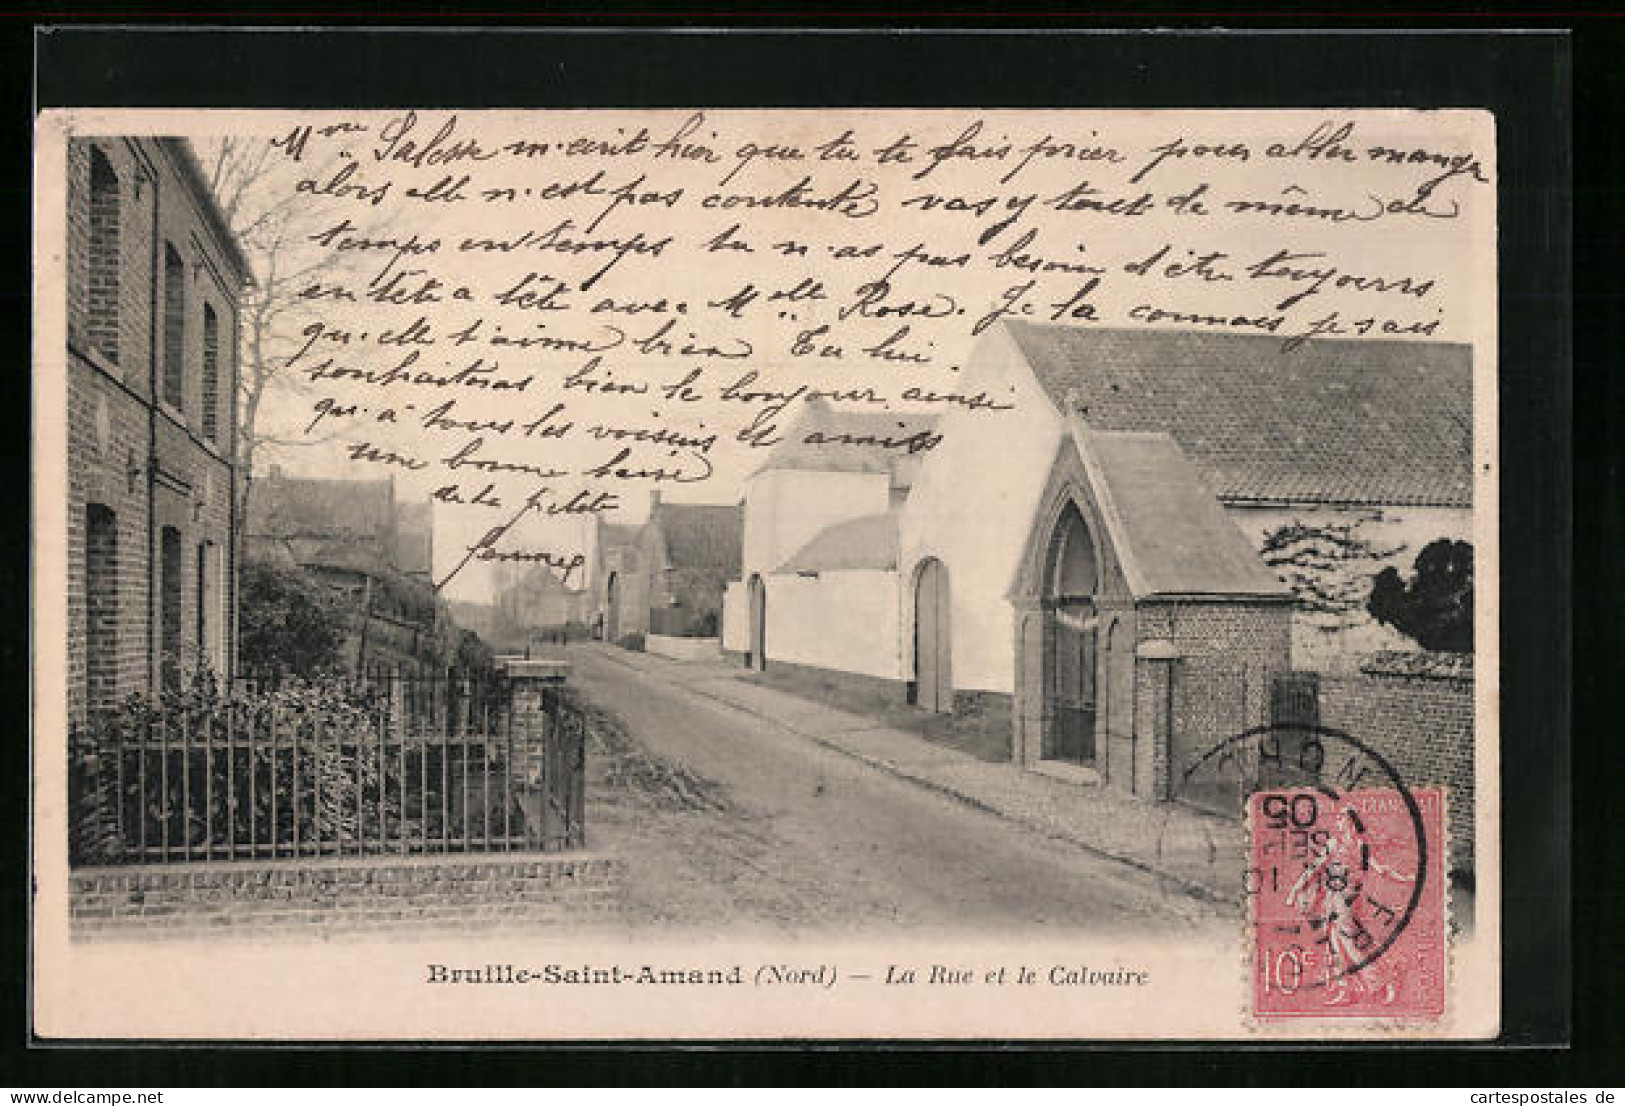 Mme m'ecrit hier que tu te fais prier pour aller manger
alors elle n'est pas contente vas y tout de même de
temps en temps tu n'as pas besoin d'être toujours
en tête a tête avec Melle Rose. Je la connais je sais
qu'elle t'aime bien Tu lui
souhaiteras bien le bonjour ainsi
qu'à tous les voisins et amies
une bonne
de la petite
Bruille-Saint-Amand (Nord) — La Rue et le Calvaire
05
SEPT
18
10c
cartespostales de